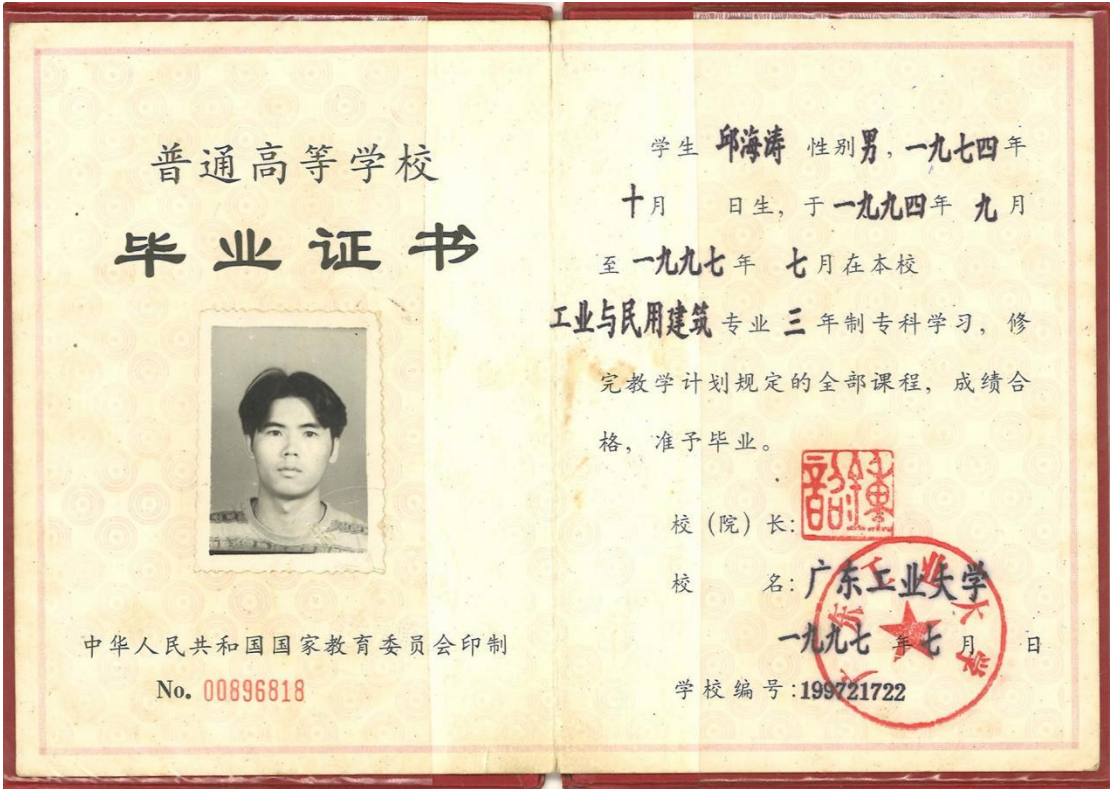 普通高等学校
毕业证书
中华人民共和国国家教育委员会印制
No. 00896818
学生 邱海涛 性别男，一九七四年
十月 日生，于一九九四年 九月
至 一九九七年 七月在本校
工业与民用建筑专业 三 年制专科学习，修
完教学计划规定的全部课程，成绩合
格，准予毕业。
校（院）长：
校 名：广东工业大学
一九九七 年七月 日
学校编号：199721722
广东工业大学